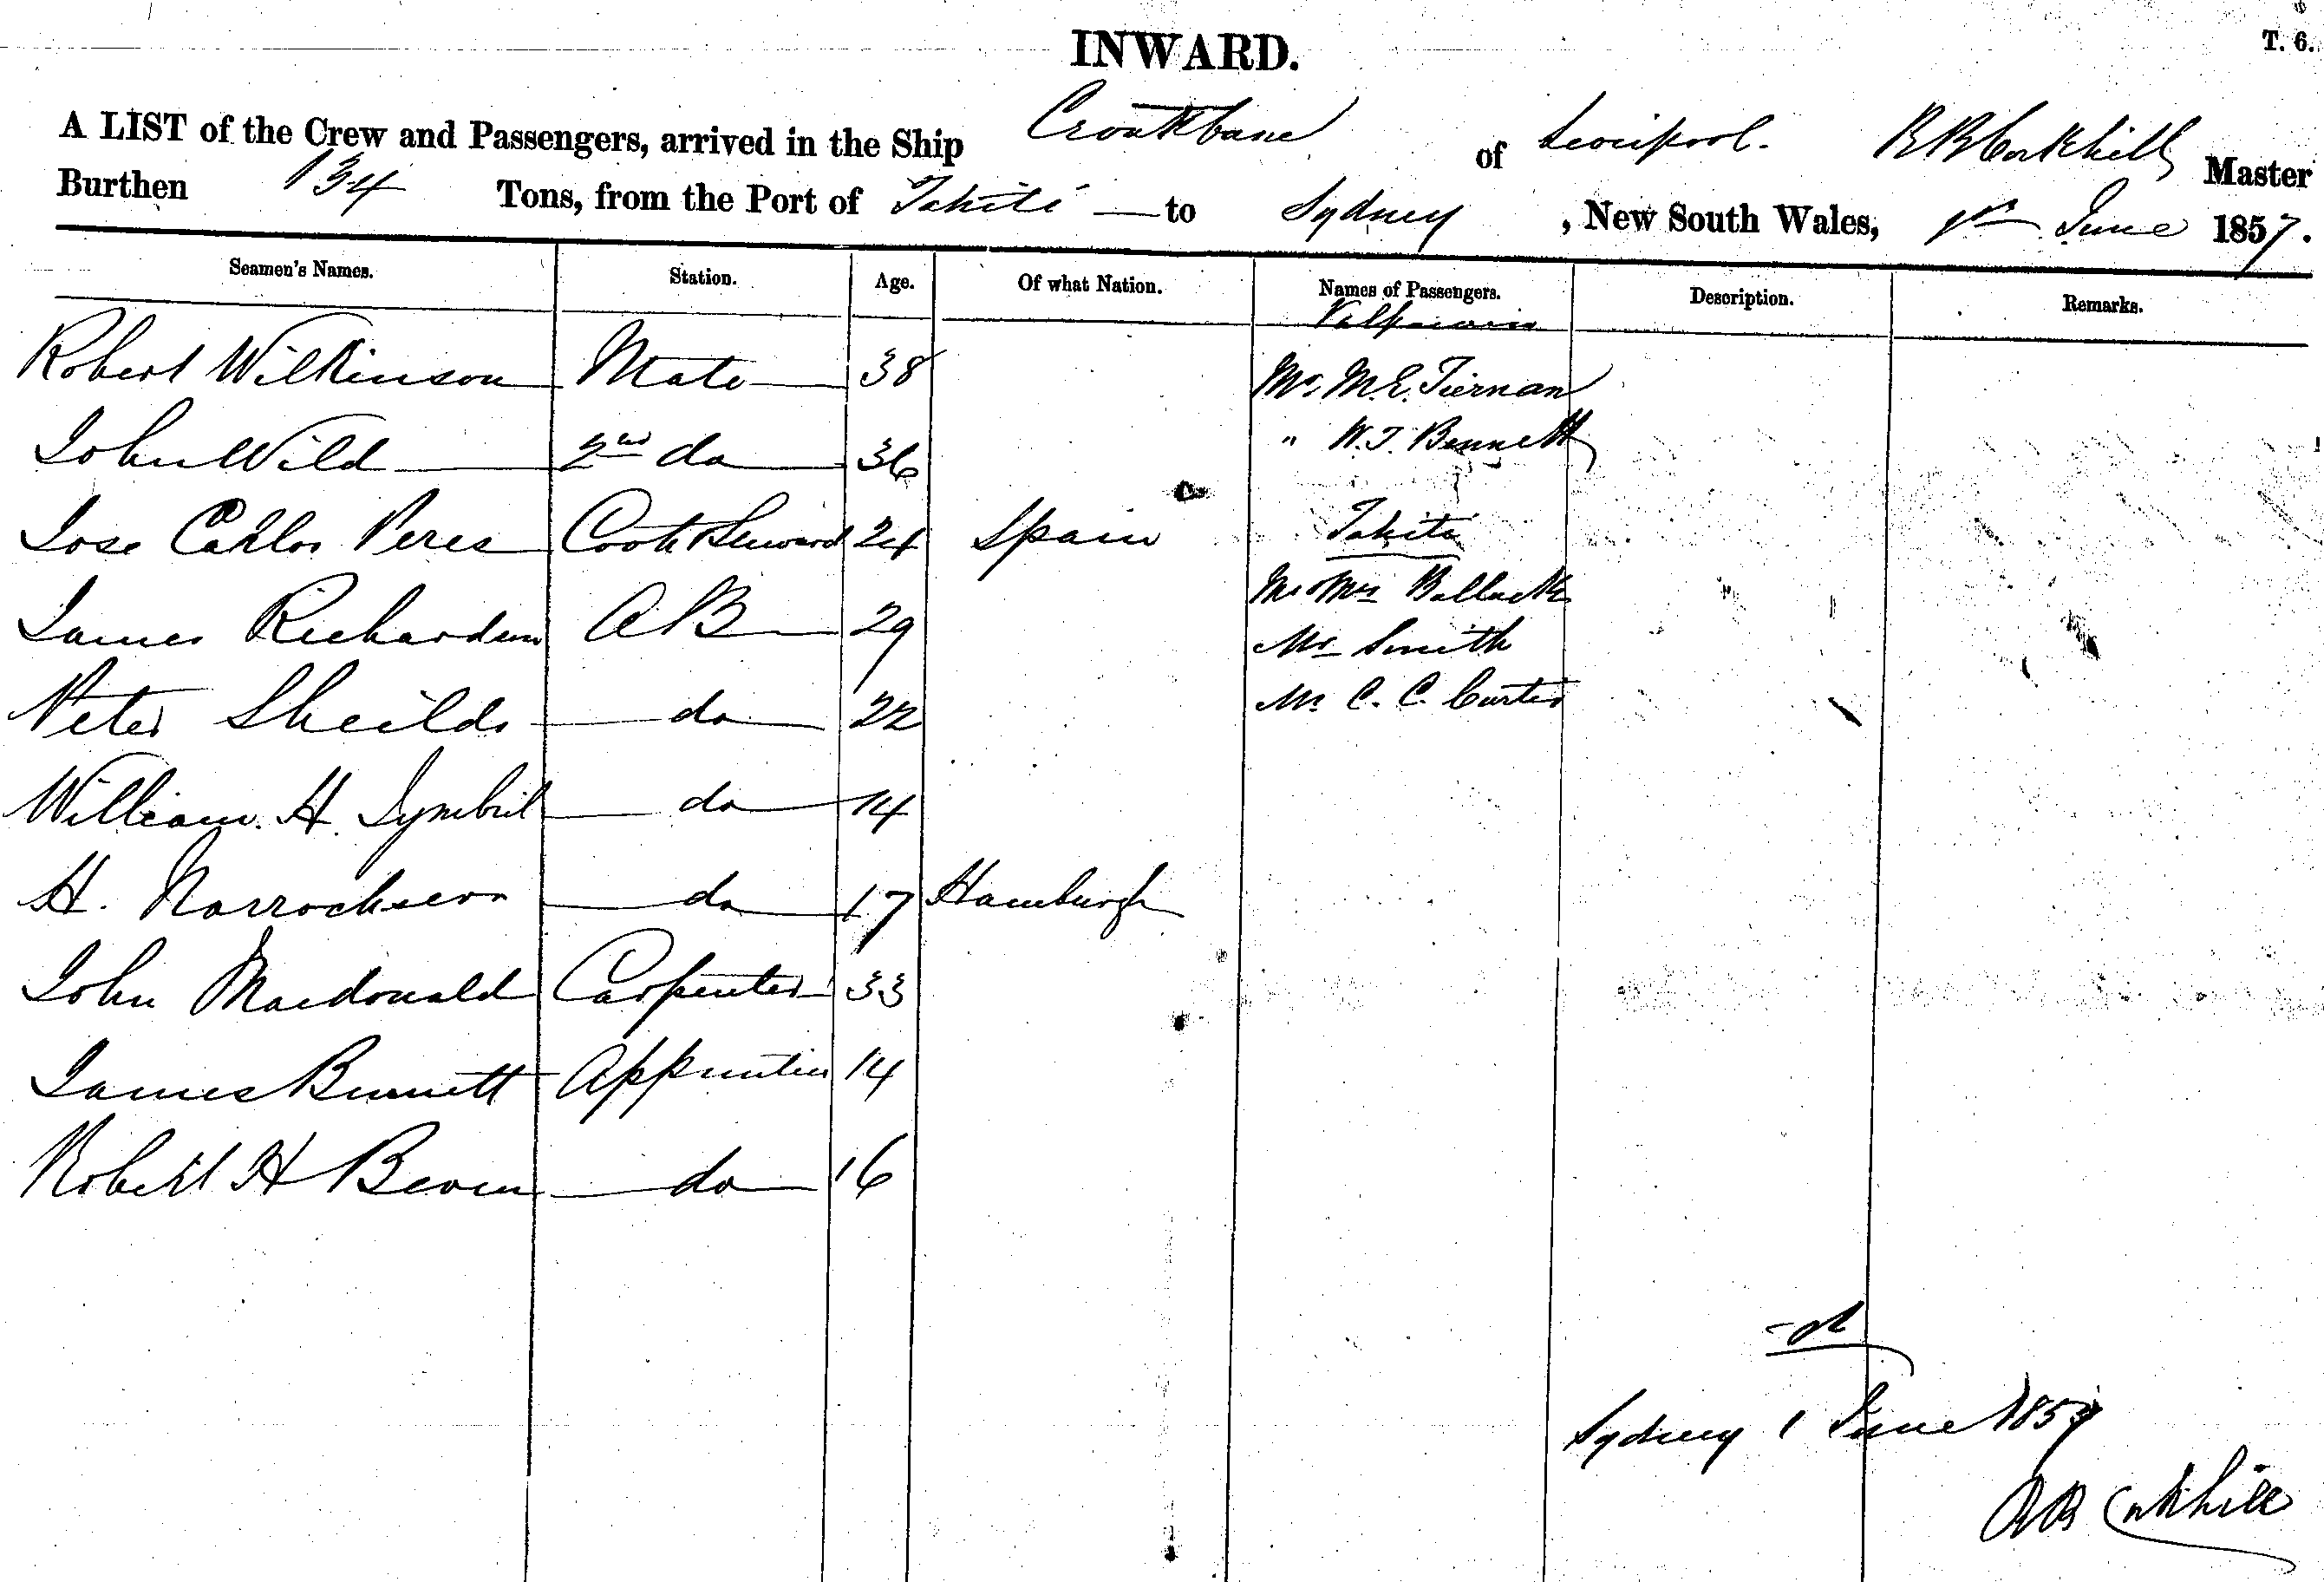 INWARD.
T. 6.
A LIST of the Crew and Passengers, arrived in the Ship Croukbane of Liverpool. R B Corkhill Master
Burthen 134 Tons, from the Port of Tahiti — to Sydney, New South Wales, 1st June 1857.
Seamen's Names. Station. Age. Of what Nation. Names of Passengers. Description. Remarks.
Valparaiso
Robert Wilkinson Mate 38 Mr. M. E. Tiernan
John Wild 2nd do 36 " W. J. Bennett
Jose Carlos Peres Cook & Steward 24 Spain Tahiti
Mr & Mrs
James Richardson A B 29 Mr Smith
Peter Sheilds do 22 Mr C. C. Curtis
William H. do 14
H. do 17 Hamburgh
John Macdonald Carpenter 33
James Bennett Apprentice 14
Robert H Beven do 16
Sydney 1 June 1857
R B Corkhill